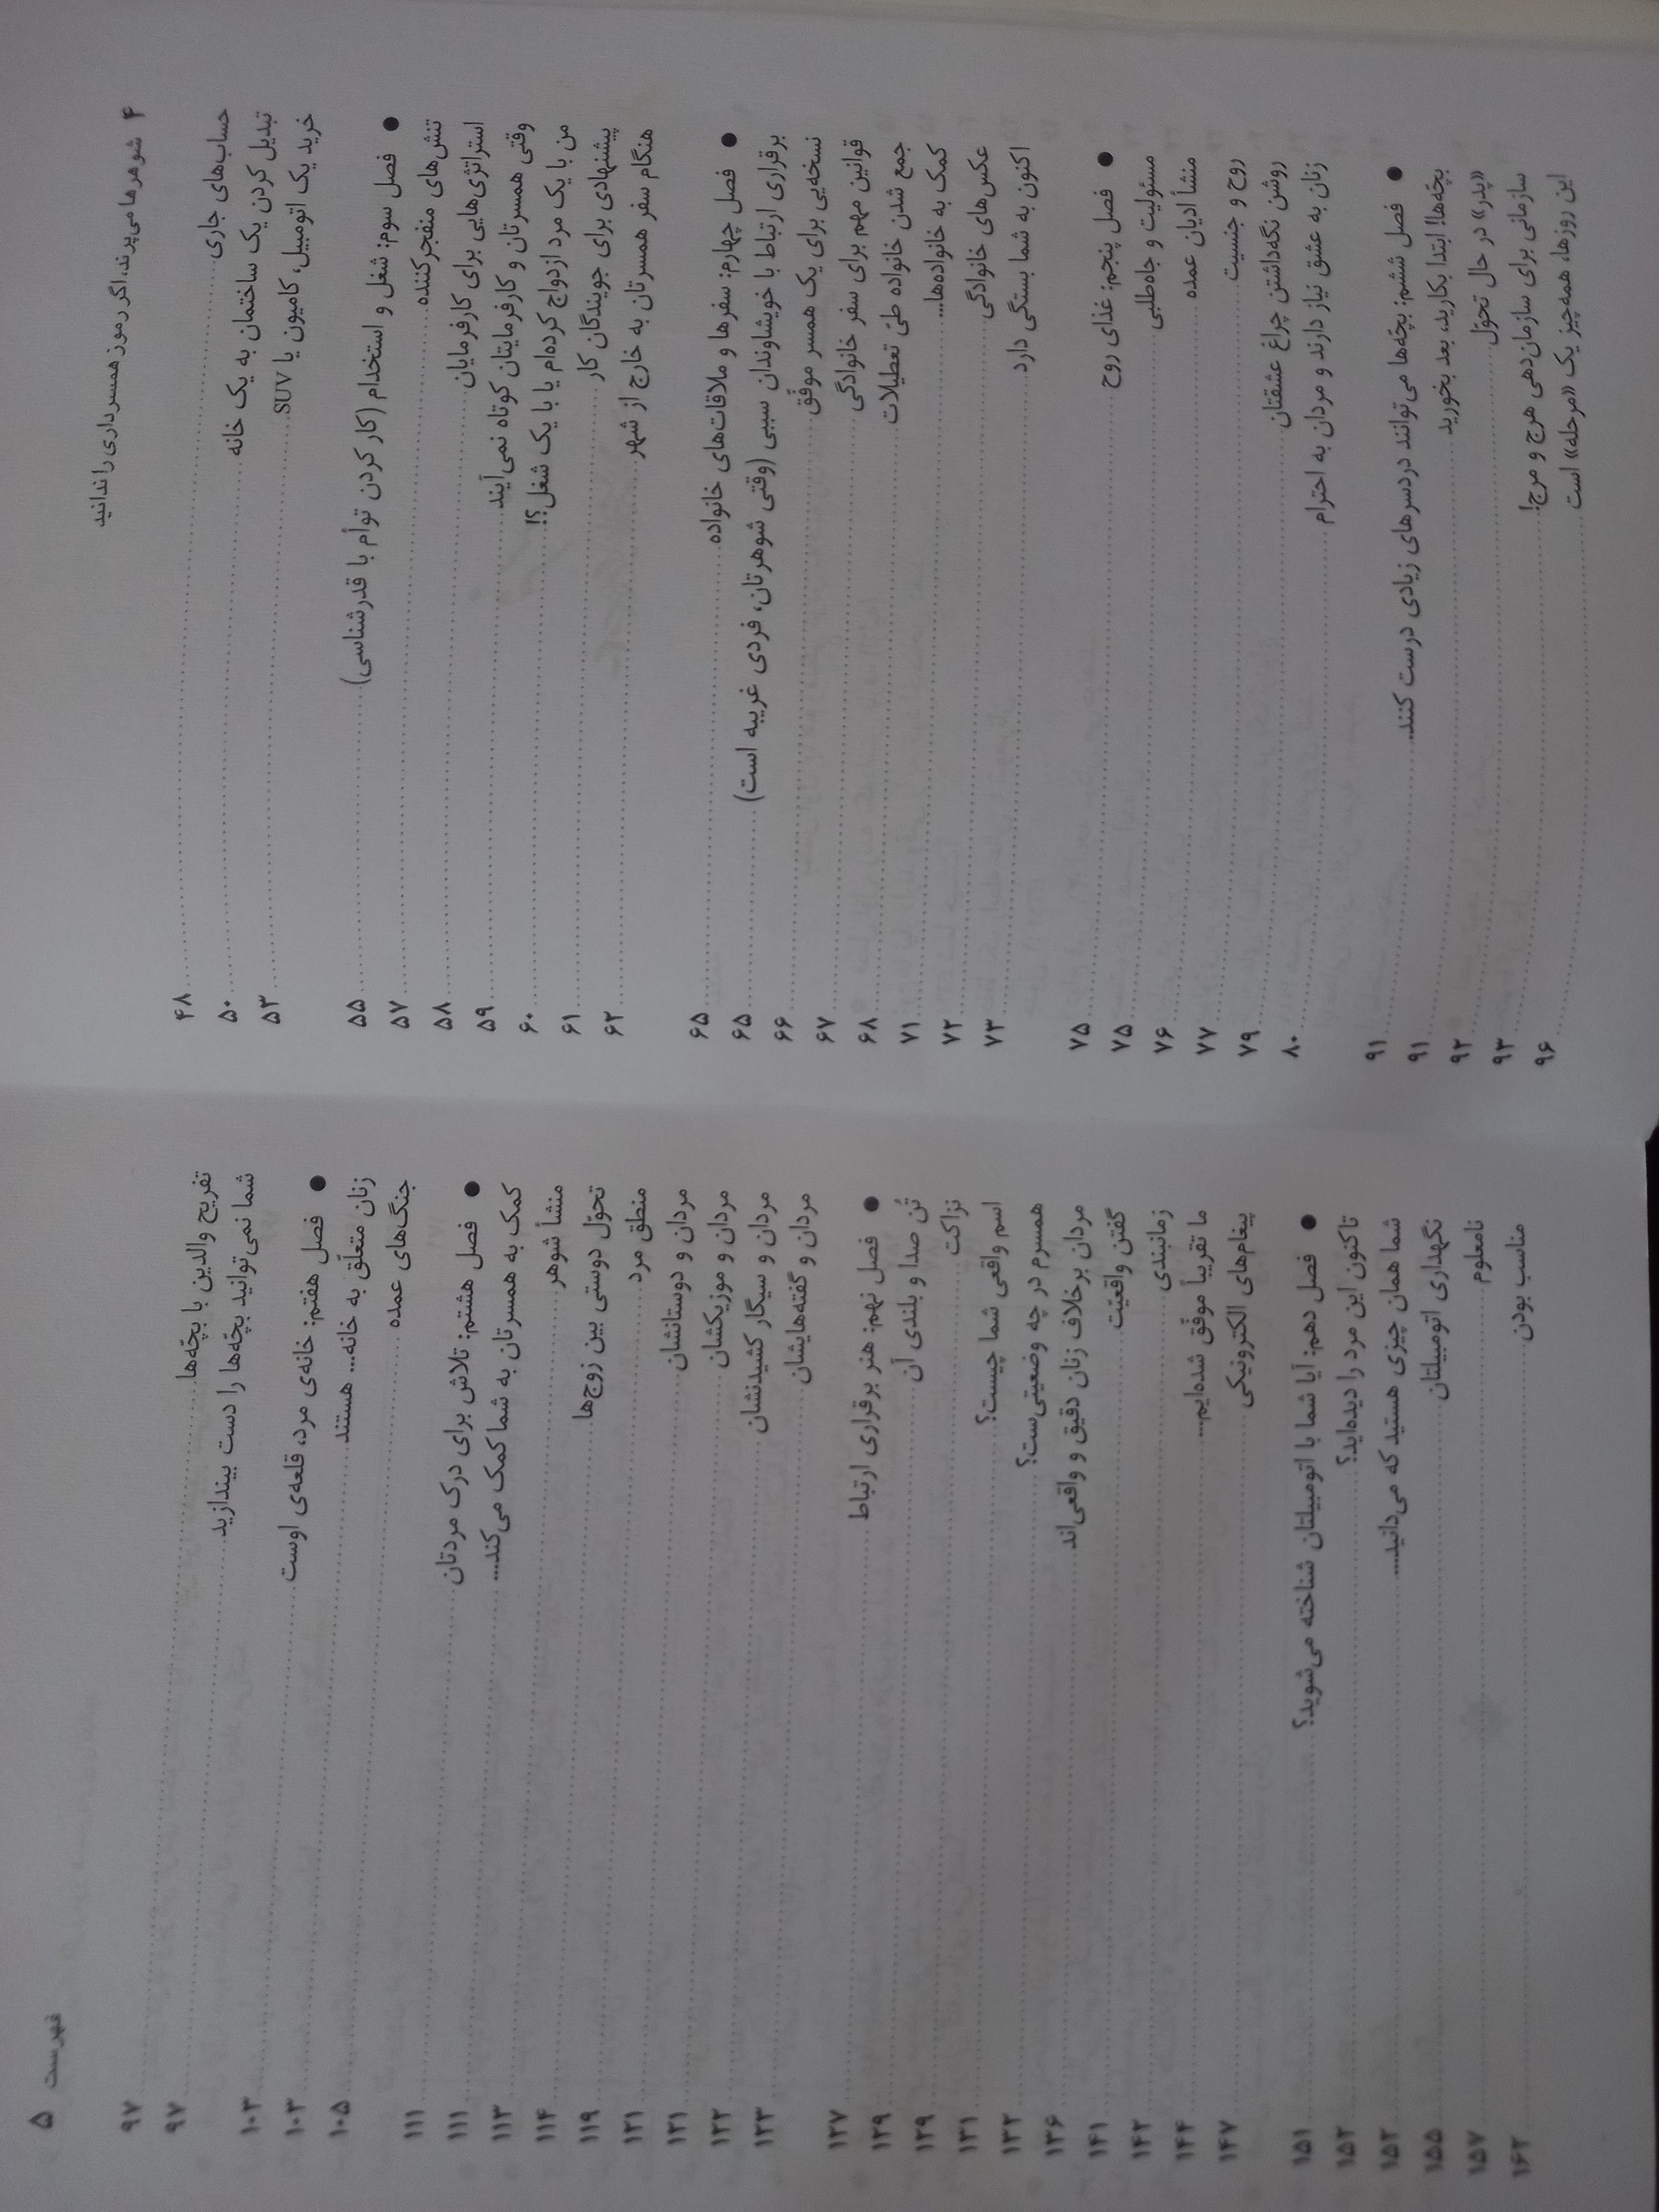 ۴ شوهرها می‌پرند، اگر رموز همسرداری را ندانید
حساب‌های جاری ........ ۴۸
تبدیل کردن یک ساختمان به یک خانه ........ ۵۰
خرید یک اتومبیل، کامیون یا SUV ........ ۵۳
● فصل سوم: شغل و استخدام (کار کردن توأم با قدرشناسی) ........ ۵۵
تنش‌های منفجرکننده ........ ۵۷
استراتژی‌هایی برای کارفرمایان ........ ۵۸
وقتی همسرتان و کارفرمایتان کوتاه نمی‌آیند ........ ۵۹
من با یک مرد ازدواج کرده‌ام یا با یک شغل؟! ........ ۶۰
پیشنهادی برای جویندگان کار ........ ۶۱
هنگام سفر همسرتان به خارج از شهر ........ ۶۲
● فصل چهارم: سفرها و ملاقات‌های خانواده ........ ۶۵
برقراری ارتباط با خویشاوندان سببی (وقتی شوهرتان، فردی غریبه است) ........ ۶۵
نسخه‌یی برای یک همسر موفّق ........ ۶۶
قوانین مهم برای سفر خانوادگی ........ ۶۷
جمع شدن خانواده طیّ تعطیلات ........ ۶۸
کمک به خانواده‌ها... ........ ۷۱
عکس‌های خانوادگی ........ ۷۲
اکنون به شما بستگی دارد ........ ۷۳
● فصل پنجم: غذای روح ........ ۷۵
مسئولیت و جاه‌طلبی ........ ۷۵
منشأ ادیان عمده ........ ۷۶
روح و جنسیت ........ ۷۷
روشن نگه‌داشتن چراغ عشقتان ........ ۷۹
زنان به عشق نیاز دارند و مردان به احترام ........ ۸۰
● فصل ششم: بچّه‌ها می‌توانند دردسرهای زیادی درست کنند. ........ ۹۱
بچّه‌ها! ابتدا بکارید، بعد بخورید ........ ۹۱
«پدر» در حال تحوّل ........ ۹۲
سازمانی برای سازمان‌دهی هرج و مرج! ........ ۹۳
این روزها، همه‌چیز یک «مرحله» است ........ ۹۶
فهرست ۵
تفریح والدین با بچّه‌ها ........ ۹۷
شما نمی‌توانید بچّه‌ها را دست بیندازید ........ ۹۷
● فصل هفتم: خانه‌ی مرد، قلعه‌ی اوست ........ ۱۰۳
زنان متعلّق به خانه... هستند ........ ۱۰۳
جنگ‌های عمده ........ ۱۰۵
● فصل هشتم: تلاش برای درک مردتان ........ ۱۱۱
کمک به همسرتان به شما کمک می‌کند... ........ ۱۱۱
منشأ شوهر ........ ۱۱۳
تحوّل دوستی بین زوج‌ها ........ ۱۱۴
منطق مرد ........ ۱۱۹
مردان و دوستانشان ........ ۱۲۱
مردان و موزیکشان ........ ۱۲۱
مردان و سیگار کشیدنشان ........ ۱۲۲
مردان و گفته‌هایشان ........ ۱۲۳
● فصل نهم: هنر برقراری ارتباط ........ ۱۲۷
تُن صدا و بلندی آن ........ ۱۲۹
نزاکت ........ ۱۲۹
اسم واقعی شما چیست؟ ........ ۱۳۱
همسرم در چه وضعیتی‌ست؟ ........ ۱۳۲
مردان برخلاف زنان دقیق و واقعی‌اند ........ ۱۳۶
گفتن واقعیّت ........ ۱۴۱
زمانبندی ........ ۱۴۲
ما تقریباً موفّق شده‌ایم... ........ ۱۴۴
پیغام‌های الکترونیکی ........ ۱۴۷
● فصل دهم: آیا شما با اتومبیلتان شناخته می‌شوید؟ ........ ۱۵۱
تاکنون این مرد را دیده‌اید؟ ........ ۱۵۲
شما همان چیزی هستید که می‌دانید... ........ ۱۵۲
نگهداری اتومبیلتان ........ ۱۵۵
نامعلوم ........ ۱۵۷
مناسب بودن ........ ۱۶۲